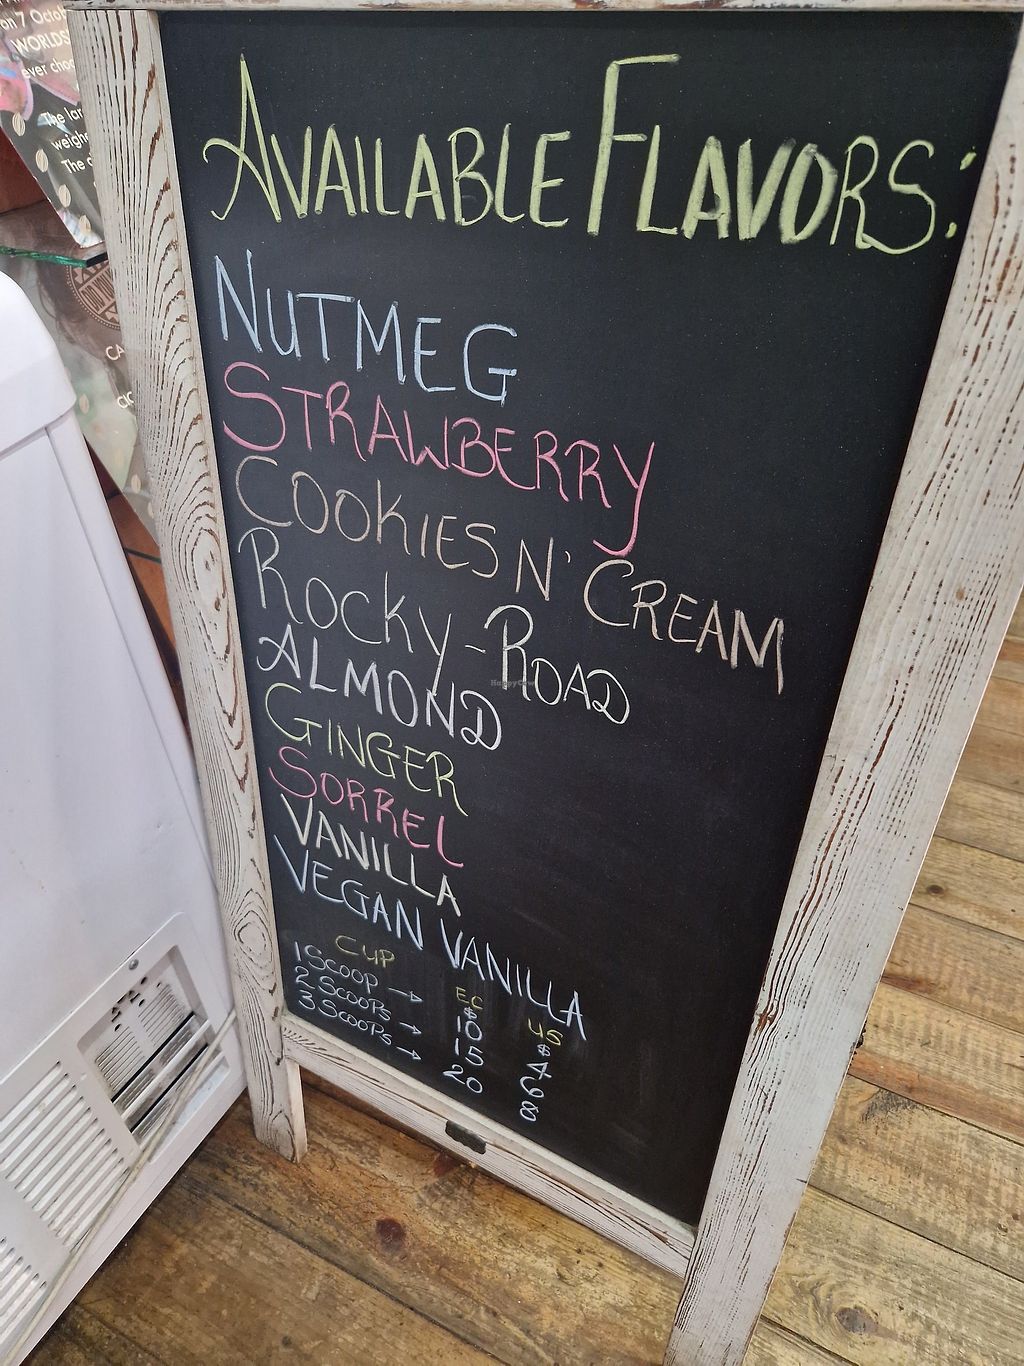 on 7 Octob
WORLDS
ever choc
The lar
weighe
The c
AVAILABLE FLAVORS:
NUTMEG
STRAWBERRY
COOKIES N' CREAM
ROCKY-ROAD
ALMOND
GINGER
SORREL
VANILLA
VEGAN VANILLA
CUP EC US
1 SCOOP → $10 $4
2 SCOOPS → 15 6
3 SCOOPS → 20 8
HappyCow